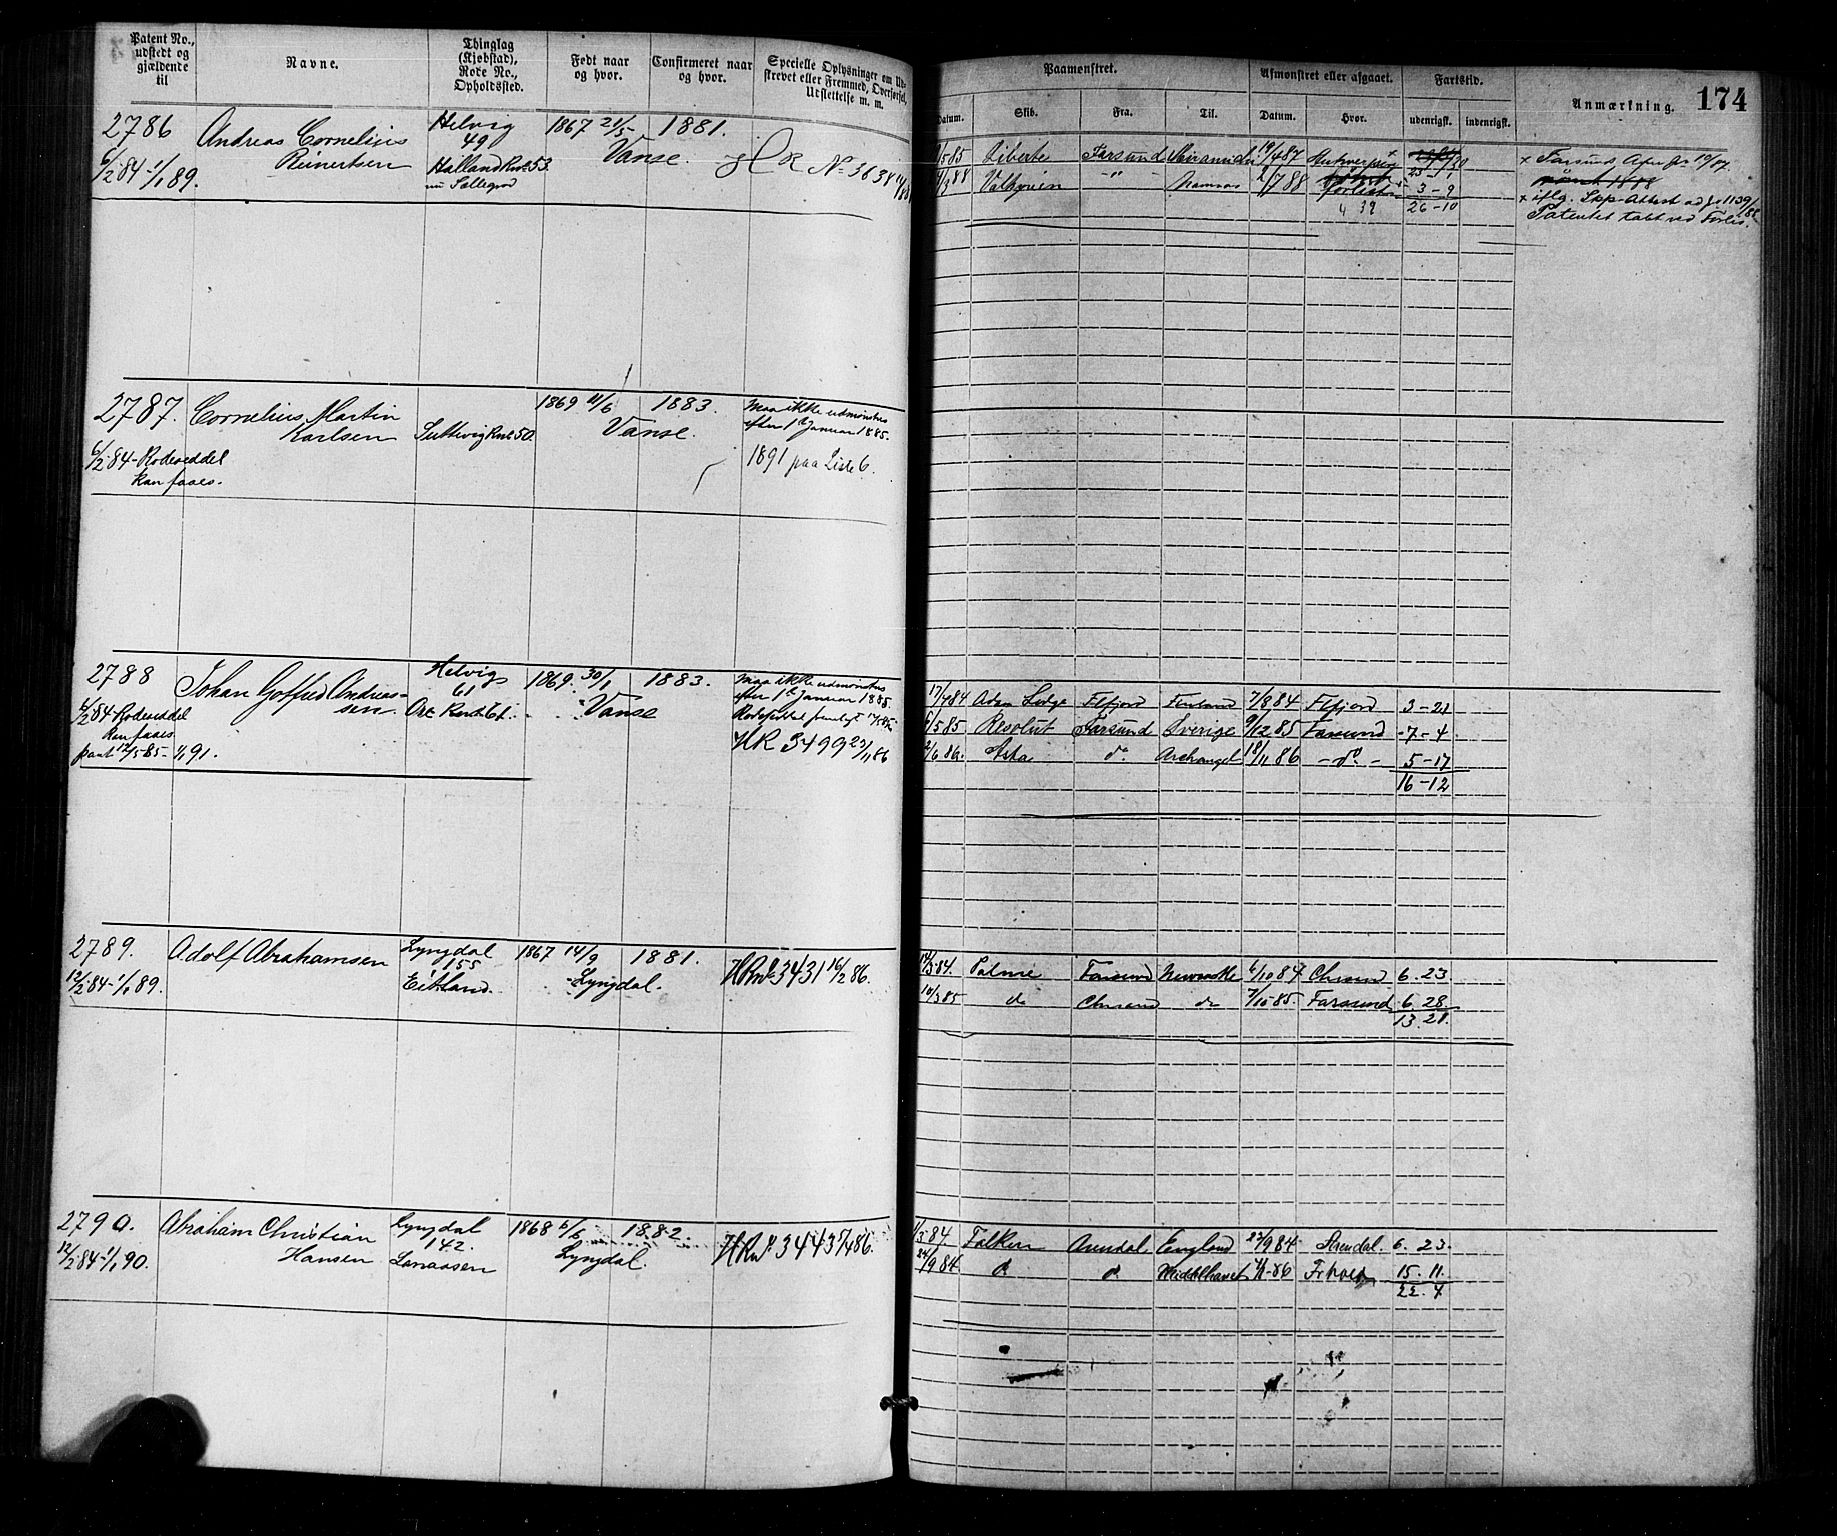 Patent No., udstedt og gjældende til
Navne.
Thinglag (Kjøbstad), Rode No., Opholdssted.
Født naar og hvor.
Confirmeret naar og hvor.
Specielle Oplysninger om Udskrevet eller Fremmed, Overførsel, Udslettelse m. m.
Paamønstret.
Afmønstret eller afgaaet.
Fartstid.
Anmærkning.
174
Datum.
Skib.
Fra.
Til.
Datum.
Hvor.
udenrigsk.
indenrigsk.
2786
Andreas Cornelius
Reinertsen
6/2-84-1/1 89.
Helvig
49
Halland Rno 53
nu Sellegrod
1867 21/5
Vanse.
1881.
HR No 3638
5 85 Liberte Farsund Miramichi 19/4 87
88 Valkyrien -"- Namsos 2/7 88 forlist
23-1
3-9
26-10
x Farsund
Patentet tabt ved Forlis.
2787.
Cornelius Martin
Karlsen
6/2-84-Rodeseddel
kan faaes.
Rno 50.
1869 11/6
Vanse.
1883.
Maa ikke udmønstres
efter 1ste Januar 1885.
1891 paa Liste 6.
2788
Johan Andreas-
sen
6/2 84 Rodeseddel
kan faaes
pant 12/5 85- 1/1 91.
Helvig
61
Ore Rno 61.
1869. 30/1
Vanse
1883.
Maa ikke udmønstres
efter 1ste Januar 1885.
HR 3499 23/11 86
17/4 84 Adm Flfjord Finland 7/8 84 Flfjord 3-21
6/5 85 Resolut Farsund Sverige 9/12 85 Farsund -7-4
2/6 86. Asta do Archangel 18/11 86 -do- 5-17
16-12
2789.
Adolf Abrahamsen
12/2-84-1/1 89.
Lyngdal
155
Eitland.
1867 14/9
Lyngdal.
1881.
HRno 3431 16/2 86.
14/3-84. Palme Farsund Newcastle 6/10 84 Chrsund 6.23
10/3 85 do Chrsand do 7/10-85. Farsund 6.28.
13.21.
2790.
Abraham Christian
Hansen
12/2 84-1/1 90.
Lyngdal
142.
1868 6/6
Lyngdal.
1882.
HRno 3443 7/4 86.
1/3-84. Falken Arendal England 22/9 84 Arendal. 6.23.
24/9 84 do do Middelhavet 86 15.11.
22.4